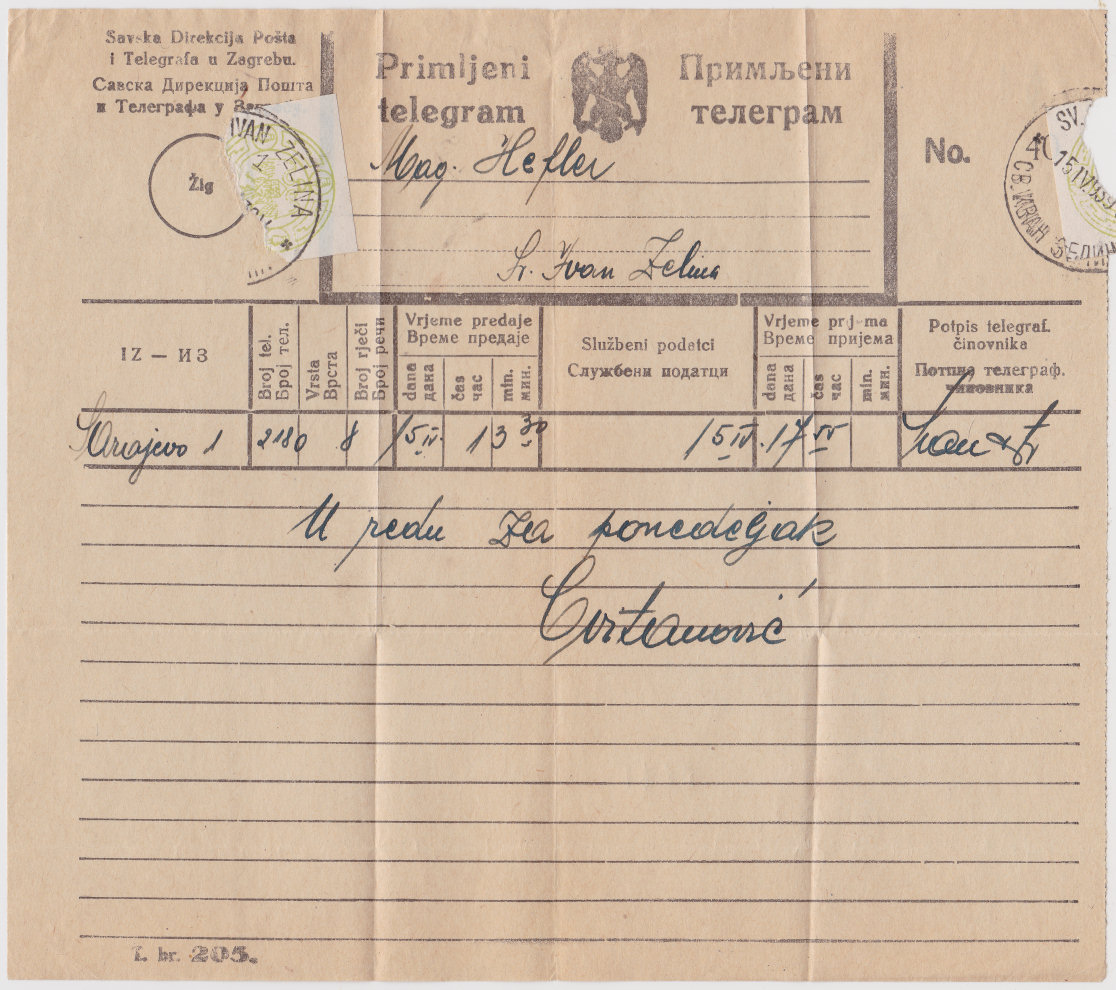 Savska Direkcija Pošta
i Telegrafa u Zagrebu.
Савска Дирекција Пошта
и Телеграфа у
Žig
IVAN ZELINA
1
Primljeni
telegram
Примљени
телеграм
Mag. Hefler
Sv. Ivan Zelina
No.
SV.
15 IV 1939
СВ. ИВАН ЗЕЛИН
IZ — ИЗ
Broj tel.
Број тел.
Vrsta
Врста
Broj rječi
Број речи
Vrjeme predaje
Време предаје
dana
дана
čas
час
min.
мин.
Službeni podatci
Службени податци
Vrjeme prijema
Време пријема
dana
дана
čas
час
min.
мин.
Potpis telegraf.
činovnika
Потпис телеграф.
чиновника
Sarajevo 1 2180 8 15 IV. 13 30 15 IV. 17
U redu za ponedeljak
Cvitanović
T. br. 205.